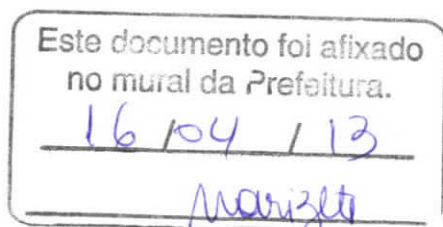 Este documento foi afixado
no mural da Prefeitura.
16 / 04 / 13
Marizete